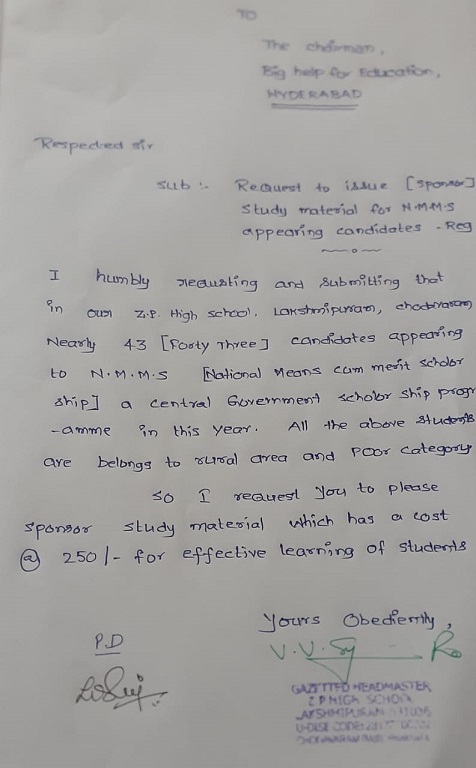 TO
The chairman,
Big help for Education,
HYDERABAD
Respected sir
Sub :- Request to issue [sponsor]
study material for N.M.M.S
appearing candidates - Reg
I humbly requsting and submitting that
in our Z.P. High school, Lakshmipuram,
Nearly 43 [Forty Three] candidates appearing
to N.M.M.S [National Means cum merit scholor
ship] a central Government scholor ship progr
-amme in this year. All the above students
are belongs to rural area and poor category
so I request you to please
sponsor study material which has a cost
@ 250/- for effective learning of students
Yours Obediently,
P.D
V.V.
GAZETTED HEADMASTER
Z P HIGH SCHOOL